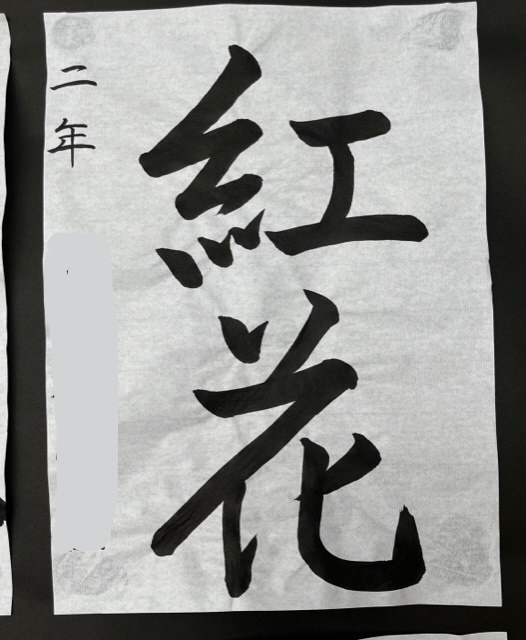 紅花
二年